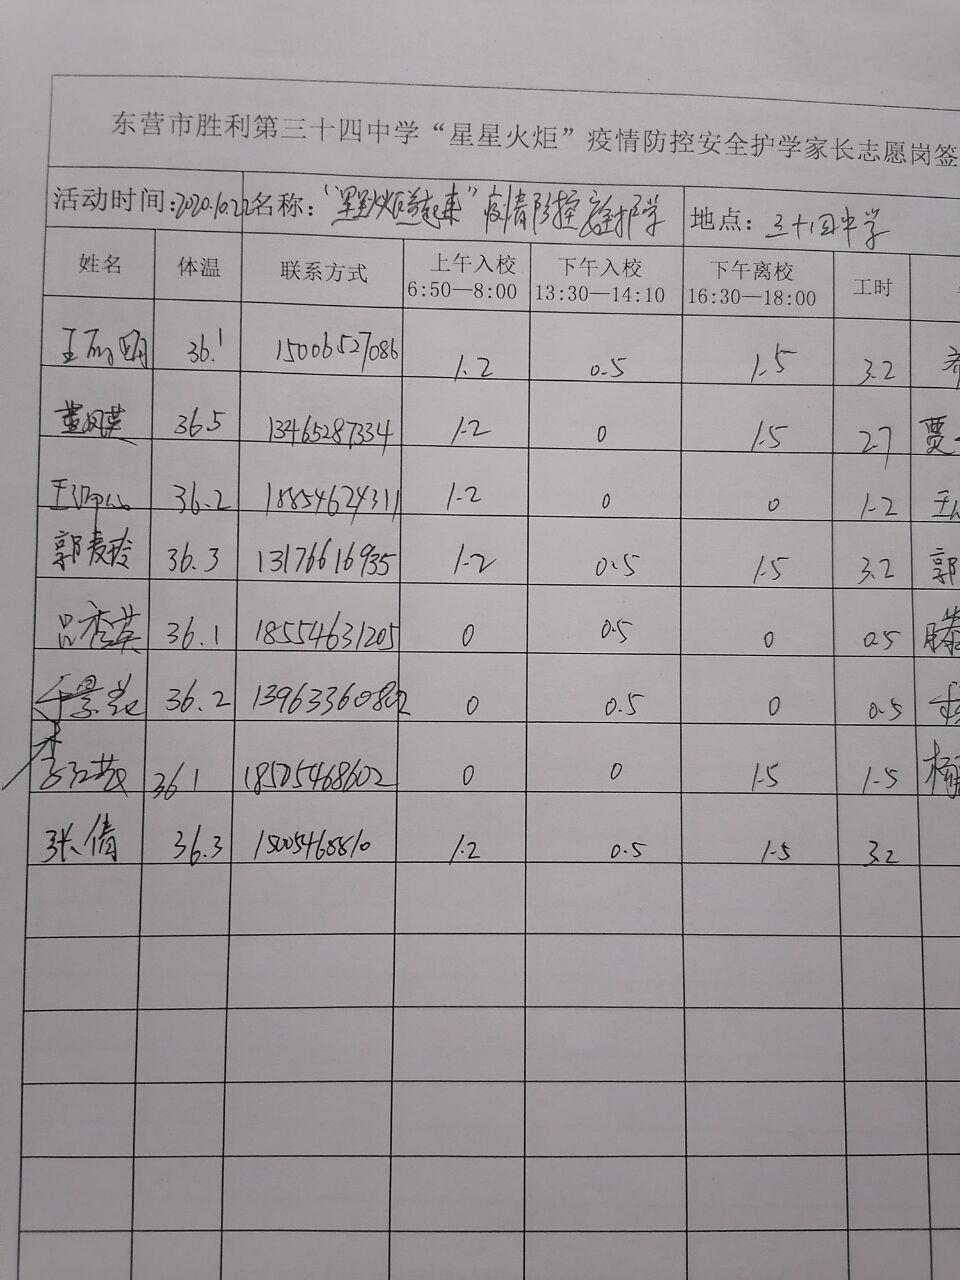 东营市胜利第三十四中学“星星火炬”疫情防控安全护学家长志愿岗签
活动时间:2020.10.22 名称: 疫情防控安全护学 地点: 三十四中学
姓名 体温 联系方式 上午入校 下午入校 下午离校 工时
6:50—8:00 13:30—14:10 16:30—18:00
36.1 15006527086 1.2 0.5 1.5 3.2
董凤英 36.5 13465287334 1.2 0 1.5 2.7 贾
36.2 18854624311 1.2 0 0 1.2
郭麦玲 36.3 13176616935 1.2 0.5 1.5 3.2 郭
吕秀英 36.1 18554631205 0 0.5 0 0.5 滕
于景 36.2 0 0.5 0 0.5
36.1 18505468602 0 0 1.5 1.5 杨
张倩 36.3 15005468810 1.2 0.5 1.5 3.2